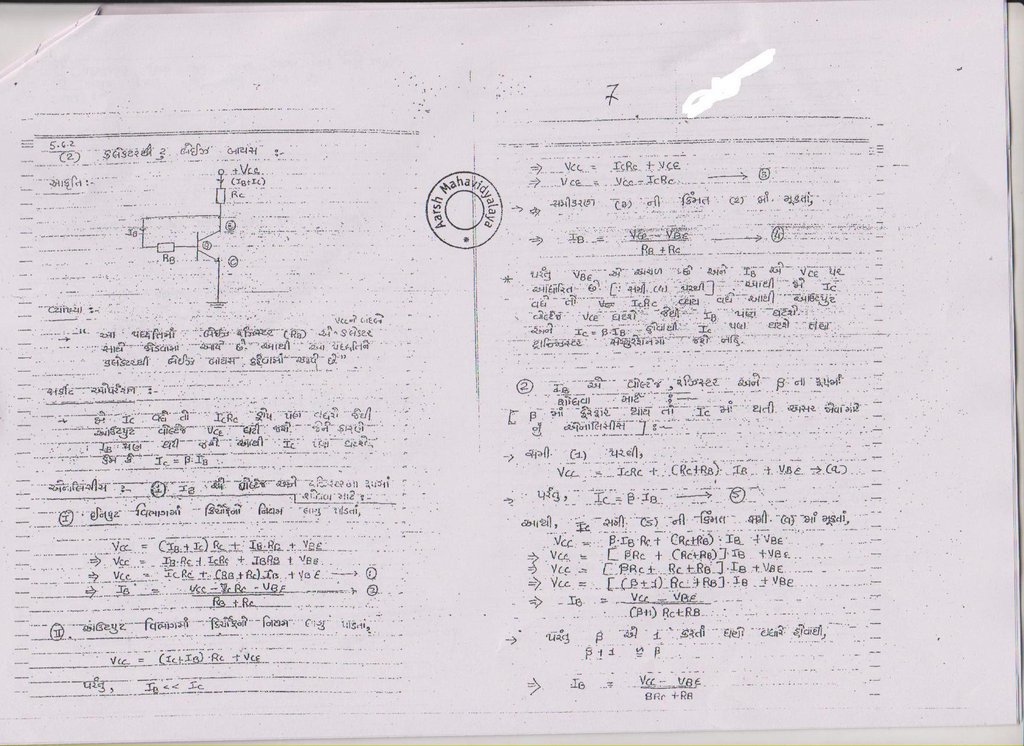 7
5.6.2
(2) કલેક્ટરથી ટુ બેઈઝ બાયસ :-
આકૃતિ :-
+Vcc
(IB+IC)
Rc
IB
RB
વ્યાખ્યા :-
Vcc ને બદલે
"આ પદ્ધતિમાં બેઈઝ રજિસ્ટર (RB) એ કલેક્ટર
સાથે જોડવામાં આવે છે. આથી આ પદ્ધતિને
કલેક્ટરથી બેઈઝ બાયસ કહેવામાં આવે છે"
સર્કીટ ઓપરેશન :-
→ જો Ic વધે તો IcRc ડ્રોપ પણ વધશે જેથી
આઉટપુટ વોલ્ટેજ VCE ઘટી જશે જેને કારણે
IB પણ ઘટી જશે આથી Ic પણ ઘટશે.
કેમ કે Ic = β·IB
એનાલિસીસ :- ① IB એ વોલ્ટેજ અને રજિસ્ટરના રૂપમાં
શોધવા માટે :-
Ⓘ ઈનપુટ વિભાગમાં કિર્ચોફનો નિયમ લાગુ પાડતાં,
Vcc = (IB + Ic) Rc + IB·RB + VBE
⇒ Vcc = IB·Rc + IcRc + IBRB + VBE
⇒ Vcc = IcRc + (RB+Rc)·IB + VBE → ①
⇒ IB = Vcc - IcRc - VBE → ②
RB + Rc
Ⓘⓘ આઉટપુટ વિભાગમાં કિર્ચોફનો નિયમ લાગુ પાડતાં,
Vcc = (Ic+IB)·Rc + VCE
પરંતુ, IB << Ic
Aarsh Mahavidyalaya
⇒ Vcc = IcRc + VCE
⇒ VCE = Vcc - IcRc → ③
→ સમીકરણ (૩) ની કિંમત (૨) માં મૂકતાં,
⇒ IB = VCE - VBE → ④
RB + Rc
* પરંતુ VBE એ અચળ છે અને IB એ VCE પર
આધારિત છે [∵ સમી. (૪) પરથી] આથી જો Ic
વધે તો IcRc વ્યય વધે આથી આઉટપુટ
વોલ્ટેજ VCE ઘટશે જેથી IB પણ ઘટશે
અને Ic = β·IB હોવાથી Ic પણ ઘટશે તથા
ટ્રાન્ઝિસ્ટર સેચ્યુરેશનમાં જશે નહિ.
② IB એ વોલ્ટેજ, રજિસ્ટર અને β ના રૂપમાં
શોધવા માટે :-
[ β માં ફેરફાર થાય તો Ic માં થતી અસર જોવા માટે
નું એનાલિસીસ ] :-
→ સમી (1) પરથી,
Vcc = IcRc + (Rc+RB)·IB + VBE → (૧)
→ પરંતુ, Ic = β·IB → ⑤
આથી, Ic સમી (૫) ની કિંમત સમી (૧) માં મૂકતાં,
Vcc = β·IB Rc + (Rc+RB)·IB + VBE
⇒ Vcc = [ βRc + (Rc+RB) ]·IB + VBE
⇒ Vcc = [ βRc + Rc + RB ]·IB + VBE
⇒ Vcc = [ (β+1) Rc + RB ]·IB + VBE
⇒ IB = Vcc - VBE
(β+1) Rc + RB
→ પરંતુ β એ 1 કરતાં ઘણો વધારે હોવાથી,
β + 1 ≅ β
⇒ IB = Vcc - VBE
βRc + RB